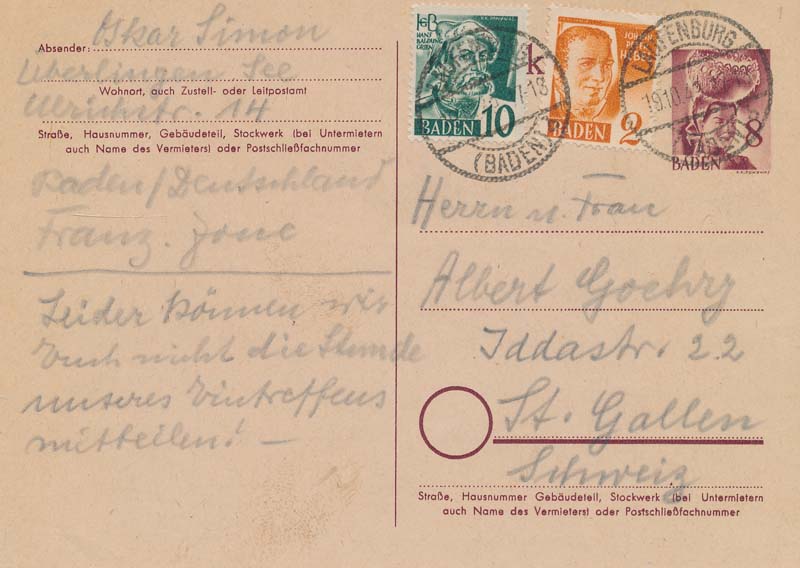 Absender: Oskar Simon
Überlingen See
Wohnort, auch Zustell- oder Leitpostamt
Ulrichstr. 14
Straße, Hausnummer, Gebäudeteil, Stockwerk (bei Untermietern
auch Name des Vermieters) oder Postschließfachnummer
Baden/Deutschland
Franz. Zone
Leider können wir
Euch nicht die Stunde
unseres Eintreffens
mitteilen! —
HANS
BALDUNG
GRIEN
BADEN 10
k
1-18
(BADEN)
BADEN 2
19.10.
BADEN 8
Herrn u. Frau
Albert Goehry
Iddastr. 22
St. Gallen
Schweiz
Straße, Hausnummer Gebäudeteil, Stockwerk (bei Untermietern
auch Name des Vermieters) oder Postschließfachnummer